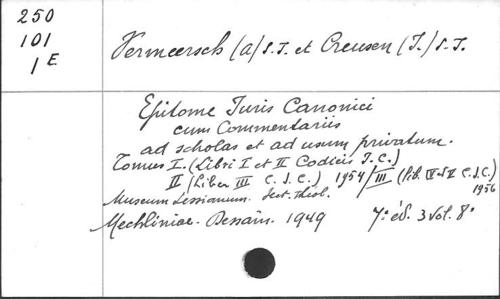 250
101
1E
Vermeersch (A) S.J. et Creusen (J.) S.J.
Epitome Juris Canonici
cum Commentariis
ad scholas et ad usum privatum.
Tomus I. (Libri I et II Codicis J.C.)
II (Liber III C.J.C.) 1954/III (Lib. IV et V C.J.C.)
1956
Museum Lessianum. Sect. Théol.
Mechliniae. Dessain. 1949 7e éd. 3 vol. 8°